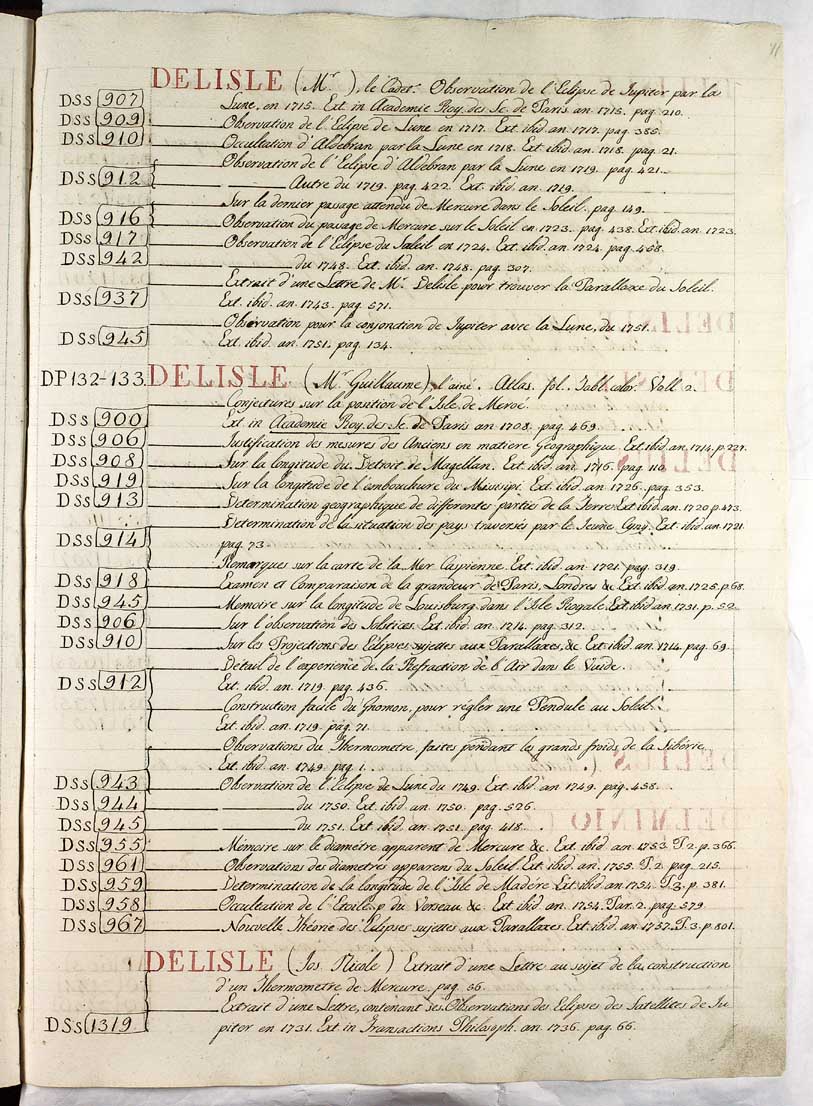 11
DELISLE (Mr. ), le Cadet. Observation de l'Eclipse de Jupiter par la
DSS 907 Lune, en 1715. Ext. in Academie Roy. des Sc. de Paris an. 1715. pag. 210.
DSS 909 Observation de l'Eclipse de Lune en 1717. Ext. ibid. an. 1717. pag. 385.
DSS 910 Occultation d'Aldebran par la Lune en 1718. Ext. ibid. an. 1718. pag. 21.
Observation de l'Eclipse d'Aldebran par la Lune en 1719. pag. 421.
DSS 912 Autre du 1719. pag. 422. Ext. ibid. an. 1719.
Sur la dernier passage attendu de Mercure dans le Soleil. pag. 149.
DSS 916 Observation du passage de Mercure sur le Soleil en 1723. pag. 438. Ext. ibid. an. 1723.
DSS 917 Observation de l'Eclipse du Soleil en 1724. Ext. ibid. an. 1724. pag. 458.
DSS 942 du 1748. Ext. ibid. an. 1748. pag. 307.
Extrait d'une Lettre de Mr. Delisle pour trouver la Parallaxe du Soleil.
DSS 937 Ext. ibid. an. 1743. pag. 571.
Observation pour la conjonction de Jupiter avec la Lune, du 1751.
DSS 945 Ext. ibid. an. 1751. pag. 134.
DP 132-133 DELISLE (Mr. Guillaume), l'ainé. Atlas. fol. Tabl. color. Voll. 2.
Conjectures sur la position de l'Isle de Meroé.
DSS 900 Ext. in Academie Roy. des Sc. de Paris an. 1708. pag. 469.
DSS 906 Justification des mesures des Anciens en matiere Geographique. Ext. ibid. an. 1714. p. 227.
DSS 908 Sur la longitude du Detroit de Magellan. Ext. ibid. an. 1716. pag. 110.
DSS 919 Sur la longitude de l'embouchure du Missisipi. Ext. ibid. an. 1726. pag. 353.
DSS 913 Determination geographique de differentes parties de la Terre. Ext. ibid. an. 1720. p. 473.
Determination de la situation des pays traversés par le Jeune Cyrus. Ext. ibid. an. 1721.
DSS 914 pag. 73.
Remarques sur la carte de la Mer Caspienne. Ext. ibid. an. 1721. pag. 319.
DSS 918 Examen et Comparaison de la grandeur de Paris, Londres &c. Ext. ibid. an. 1725. p. 68.
DSS 945 Memoire sur la longitude de Louisburg dans l'Isle Royale. Ext. ibid. an. 1751. p. 52.
DSS 906 Sur l'observation des Solstices. Ext. ibid. an. 1714. pag. 312.
DSS 910 Sur les Projections des Eclipses sujettes aux Parallaxes, &c. Ext. ibid. an. 1714. pag. 69.
Détail de l'experience de la Refraction de l'Air dans le Vuide.
DSS 912 Ext. ibid. an. 1719. pag. 436.
Construction facile du Gnomon, pour régler une Pendule au Soleil.
Ext. ibid. an. 1719. pag. 71.
Observations du Thermometre, faites pendant les grands froids de la Sibérie.
Ext. ibid. an. 1749. pag. 1.
DSS 943 Observation de l'Eclipse de Lune du 1749. Ext. ibid. an. 1749. pag. 458.
DSS 944 du 1750. Ext. ibid. an. 1750. pag. 526.
DSS 945 du 1751. Ext. ibid. an. 1751. pag. 418.
DSS 955 Mémoire sur le diamétre apparent de Mercure &c. Ext. ibid. an. 1753. T. 2. p. 366.
DSS 961 Observations des diametres apparens du Soleil. Ext. ibid. an. 1755. T. 2. pag. 215.
DSS 959 Determination de la longitude de l'Isle de Madère. Ext. ibid. an. 1754. T. 3. p. 381.
DSS 958 Occultation de l'Etoile p du Verseau &c. Ext. ibid. an. 1754. Par. 2. pag. 579.
DSS 967 Nouvelle Théorie des Eclipses sujettes aux Parallaxes. Ext. ibid. an. 1757. T. 3. p. 801.
DELISLE (Jos. Nicole) Extrait d'une Lettre au sujet de la construction
d'un Thermometre de Mercure. pag. 56.
Extrait d'une Lettre, contenant ses Observations des Eclipses des Satellites de Ju-
DSS 1319 piter en 1731. Ext. in Transactions Philosoph. an. 1736. pag. 66.